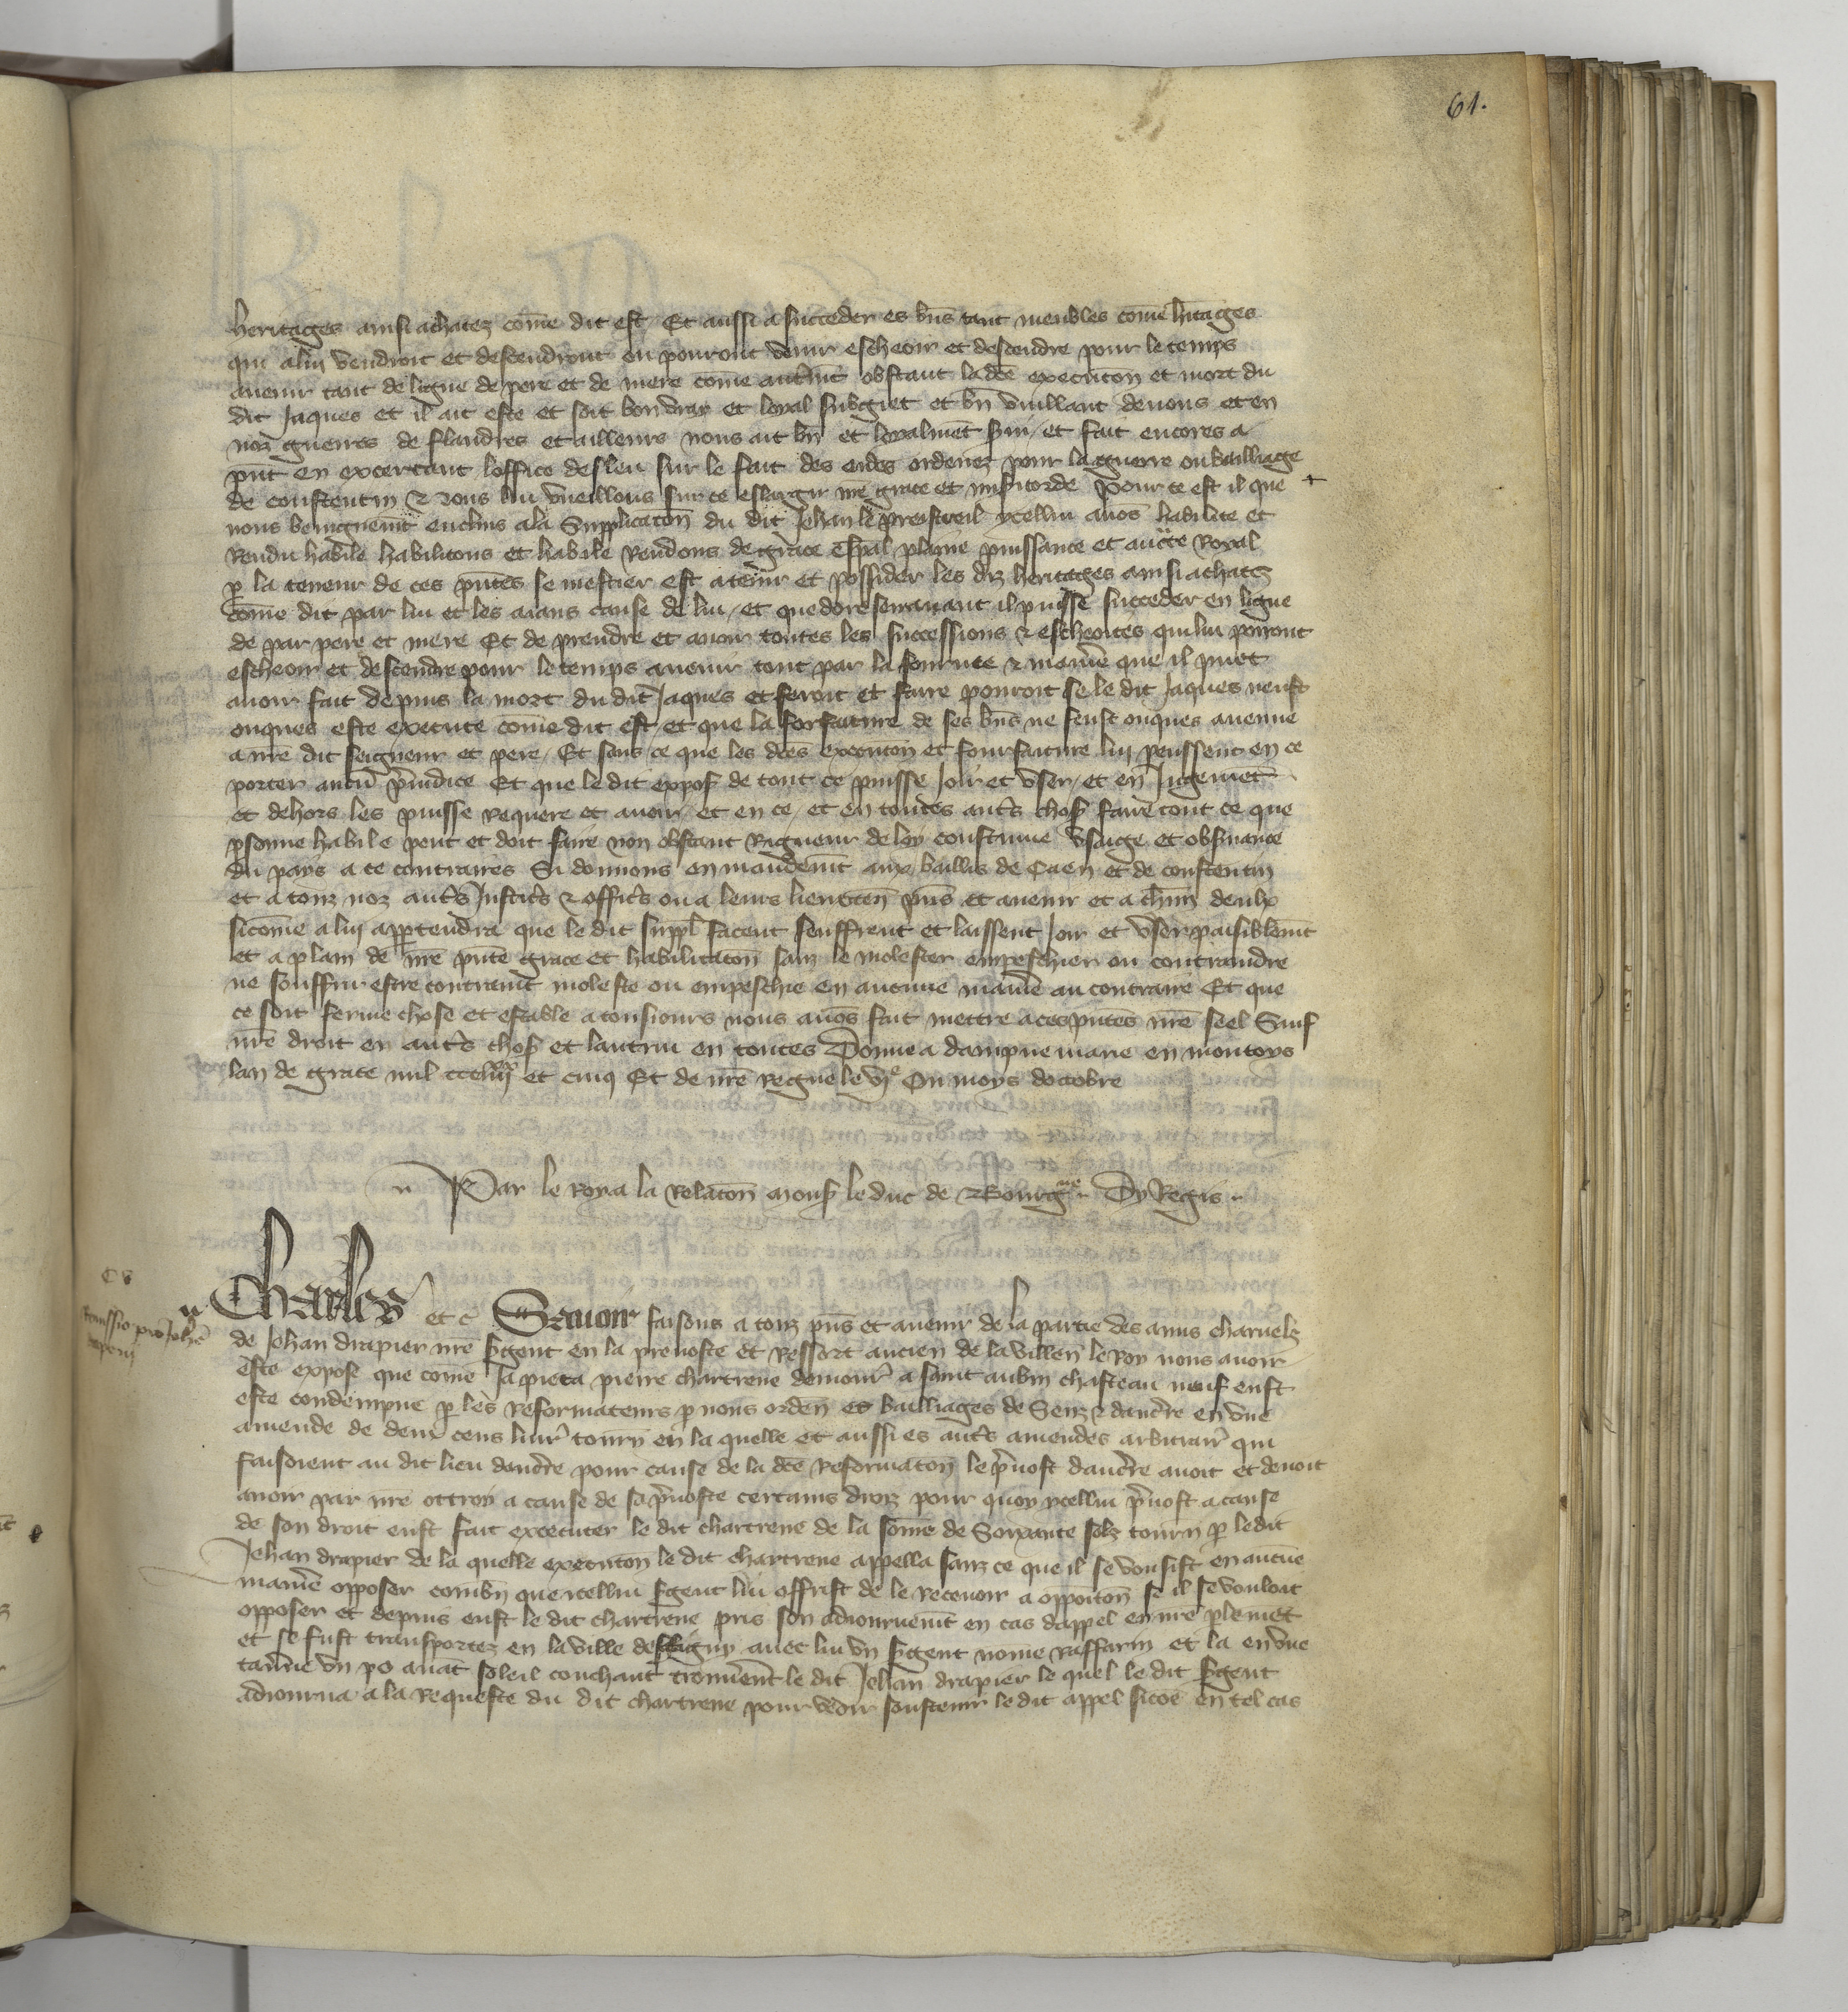 61.
heritages ainsi achatez com̄e dit est Et aussi a succeder es bn̄s tant meubles com̄e h̄itages
qui a lui vendront et descendront ou pourront venir escheoir et descendre pour le temps
avenir tant de ligne de pere et de mere com̄e autrem̄t obstant la dc̄e execucōn et mort du
dit Jaques et il ait este et soit bon vray et loyal subgiet et bn̄ vuillant de nous et en
noz guerres de flandres et ailleurs nous ait bn̄ et loyalmēt s̄vi et fait encores a
p̄nt en excercant loffice desleu sur le fait des aides ordenez pour la guerre ou bailliage
de constentin & nous lui vueillons sur ce eslargir nr̄e grace et mis̄icorde Pour ce est il que
nous benignem̄t enclins a la Supplicacōn du dit Jehan le ycellui avōs habilite et
Rendu habile habilitons et habile Rendons de grace esp̄al plaine puissance et auctē Royal
p la teneur de ces p̄ntes se mestier est a tenir et possider les diz heritages ainsi achatez
com̄e dit par lui et les aians cause de lui et que doresenavant il puisse succeder en ligne
de par pere et mere Et de prendre et avoir toutes les successions & escheoites qui lui porront
escheoir et descendre pour le temps avenir tout par la fourme & manie͂ que il puet
avoir fait depuis la mort du dit Jaques et feroit et faire pourroit se le dit Jaques neust
onques este execute com̄e dit est et que la forfaiture de ses bn̄s ne feust onques avenue
a nr̄e dit seigneur et pere Et sans ce que les dc̄es execucōn et fourfaiture lui peussent en ce
porter aucū p̄iudice Et que le dit expos̄ de tout ce puisse Joir et user et en Jugemēt
et dehors les puisse Requere et avoir et en ce et en toutes aut̄s chos̄ faire tout ce que
psonne habile peut et doit faire non obstant Rigueur de loy coustume usaige et obs̄vance
du pays a ce contraires Si donnons en mandem̄t aux baillis de Caen et de constentin
et a touz noz aut̄s Justic̄s & offic̄s ou a leurs lieuten̄ p̄ns et avenir et a ch̄un deulx
sicom̄e a lui apptendra que le dit suppl̄ facent seuffrent et laissent Joir et user paisiblem̄t
et a plain de nr̄e p̄nte grace et habilitacōn sanz le molester empeschier ou contraindre
ne souffrir estre contraint moleste ou empeschie en aucune manie͂ au contraire Et que
ce soit ferme chose et estable a tousiours nous avōs fait mettre a ces p̄ntes nr̄e seel Sauf
nr̄e droit en aut̄s chos̄ et lautrui en toutes Donne a dampne marie en montoys
lan de grace mil ccciiijxx et cinq Et de nr̄e Regne le vje Ou moys doctobre
Par le Roy a la Relacōn mons̄ le duc de Bourgne Dy Regis
Charles et c̄ Savoir faisons a touz p̄ns et avenir de la partie des amis charnelz
de Jehan drapier nr̄e s̄gent en la prevoste et Ressort ancien̄ de la villen̄ le Roy nous avoir
este expose que com̄e Ja pieca pierre chartrene demour̄ a saint aubin chasteau neuf eust
este condempne p les Reformateurs p nous orden̄ es bailliages de Senz & daucr̄re en une
amende de deux cens livr̄ tourn̄ en la quelle et aussi es aut̄s amendes arbitrair̄ qui
faisoient au dit lieu daucr̄re pour cause de la dc̄e Reformacōn le p̄vost daucr̄re avoit et devoit
avoir par nr̄e ottroy a cause de sa p̄voste certains droiz pour quoy ycellui p̄vost a cause
de son droit eust fait executer le dit chartrene de la som̄e de Soixante solz tourn̄ p le dit
Jehan drapier de la quelle execucōn le dit chartrene appella sanz ce que il se vousist en aucūe
manie͂ opposer combn̄ que icellui s̄gent lui offrist de le Recevoir a opposicōn se il se vouloit
opposer et depuis eust le dit chartrene pris son adiournem̄t en cas dappel en nr̄e plemēt
et se fust transportez en la ville avec lui un s̄gent nōme Raffarin et la en une
tav̄ne un po avāt soleil couchant trouv̄ent le dit Jehan drapier le quel le dit s̄gent
adiourna a la Requeste du dit chartrene pour veoir soustenir le dit appel sicōe en tel cas